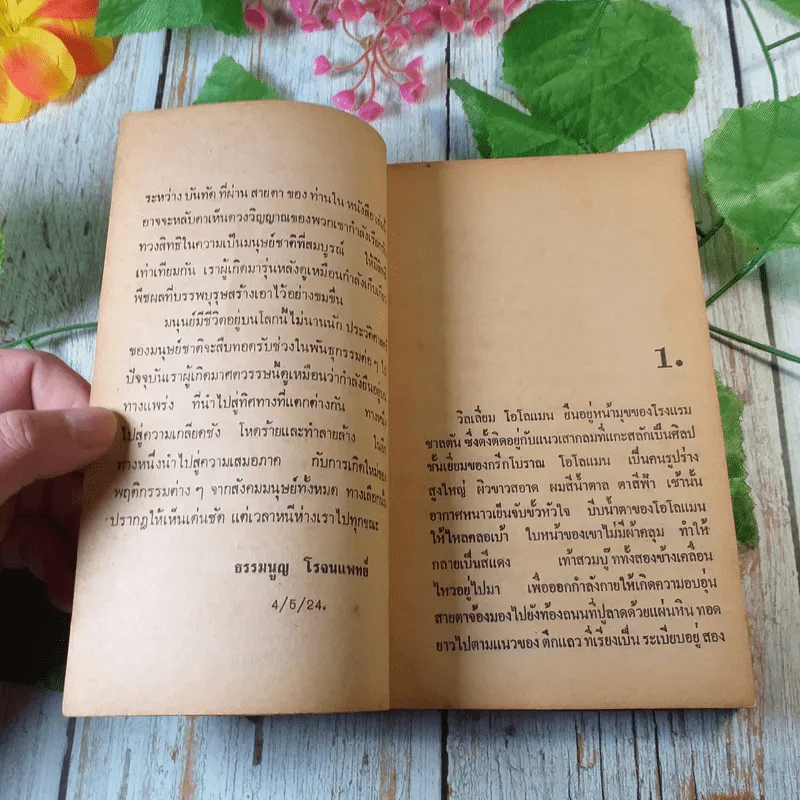 ระหว่าง บันทัด ที่ผ่าน สายตา ของ ท่านใน หนังสือ
อาจจะหลับตาเห็นดวงวิญญาณของพวกเขากำลังเรียกร้อง
ทวงสิทธิในความเป็นมนุษย์ชาติที่สมบูรณ์
เท่าเทียมกัน เราผู้เกิดมารุ่นหลังดูเหมือนกำลังเก็บเกี่ยว
พืชผลที่บรรพบุรุษสร้างเอาไว้อย่างขมขื่น
มนุษย์มีชีวิตอยู่บนโลกนี้ไม่นานนัก
ของมนุษย์ชาติจะสืบทอดรับช่วงในพันธุกรรมต่อๆ ไป
ปัจจุบันเราผู้เกิดมาศตวรรษนี้ดูเหมือนว่ากำลังยืนอยู่บน
ทางแพร่ง ที่นำไปสู่ทิศทางที่แตกต่างกัน ทางหนึ่ง
ไปสู่ความเกลียดชัง โหดร้ายและทำลายล้าง
ทางหนึ่งนำไปสู่ความเสมอภาค กับการเกิดใหม่ของ
พฤติกรรมต่าง ๆ จากสังคมมนุษย์ทั้งหมด
ปรากฏให้เห็นเด่นชัด แต่เวลาหนีห่างเราไปทุกขณะ
ธรรมนูญ โรจนแพทย์
4/5/24.
1.
วิลเลี่ยม โอโลแมน ยืนอยู่หน้ามุขของโรงแรม
ชาลตัน ซึ่งตั้งติดอยู่กับแนวเสากลมที่แกะสลักเป็นศิลป
ชั้นเยี่ยมของกรีกโบราณ โอโลแมน เป็นคนรูปร่าง
สูงใหญ่ ผิวขาวสอาด ผมสีน้ำตาล ตาสีฟ้า เช้านั้น
อากาศหนาวเย็นจับขั้วหัวใจ บีบน้ำตาของโอโลแมน
ให้ไหลคลอเบ้า ใบหน้าของเขาไม่มีผ้าคลุม ทำให้
กลายเป็นสีแดง เท้าสวมบู๊ททั้งสองข้างเคลื่อน
ไหวอยู่ไปมา เพื่อออกกำลังกายให้เกิดความอบอุ่น
สายตาจ้องมองไปยังท้องถนนที่ปูลาดด้วยแผ่นหิน ทอด
ยาวไปตามแนวของ ตึกแถว ที่เรียงเป็น ระเบียบอยู่ สอง